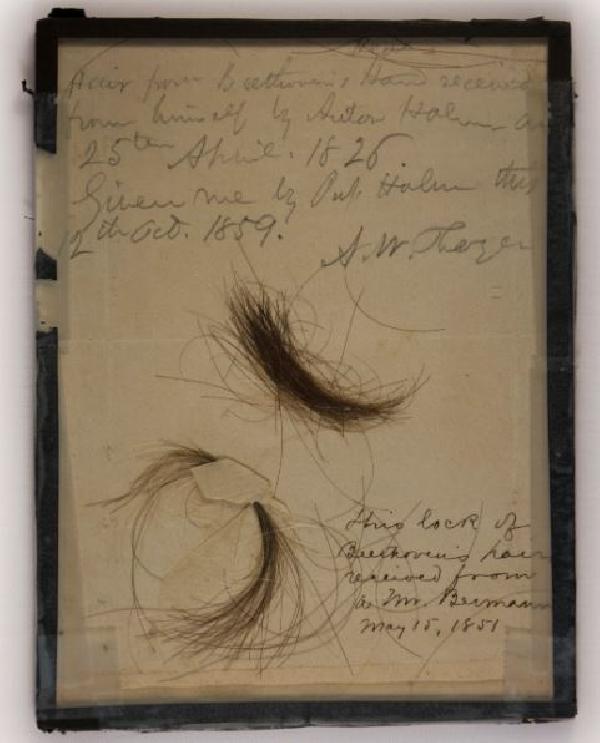 Hair from Beethoven's Head received
from himself by Anton Halm on
25ten April. 1826.
Given me by Halm this
12th Oct. 1859.
A. W. Thayer
This lock of
Beethoven's hair
received from
a Mr. Bermann
May 15, 1851